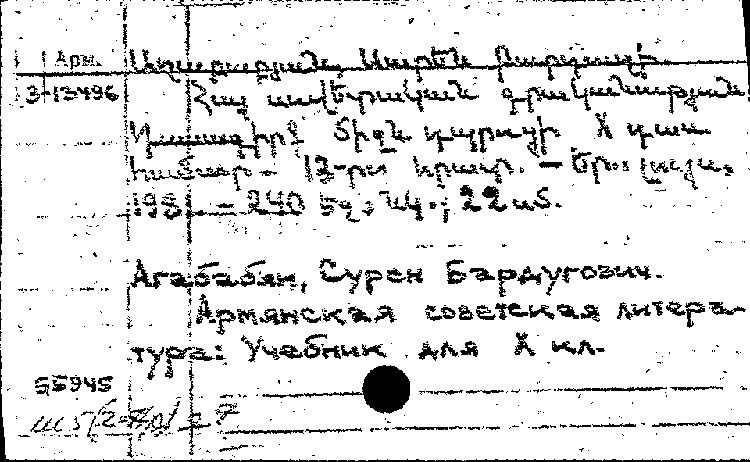 Арм.
Աղաբաբյան, Սուրեն Բարդուղի.
3-13496 Հայ սովետական գրականություն
Դասագիրք միջն դպրոցի X դաս.
համար.- 13-րդ հրատ. - Եր.: Լույս,
1981. - 240 էջ: նկ.; 22 սմ.
Агабабян, Сурен Бардугович.
Армянская советская литера-
тура: Учебник для X кл.
55945